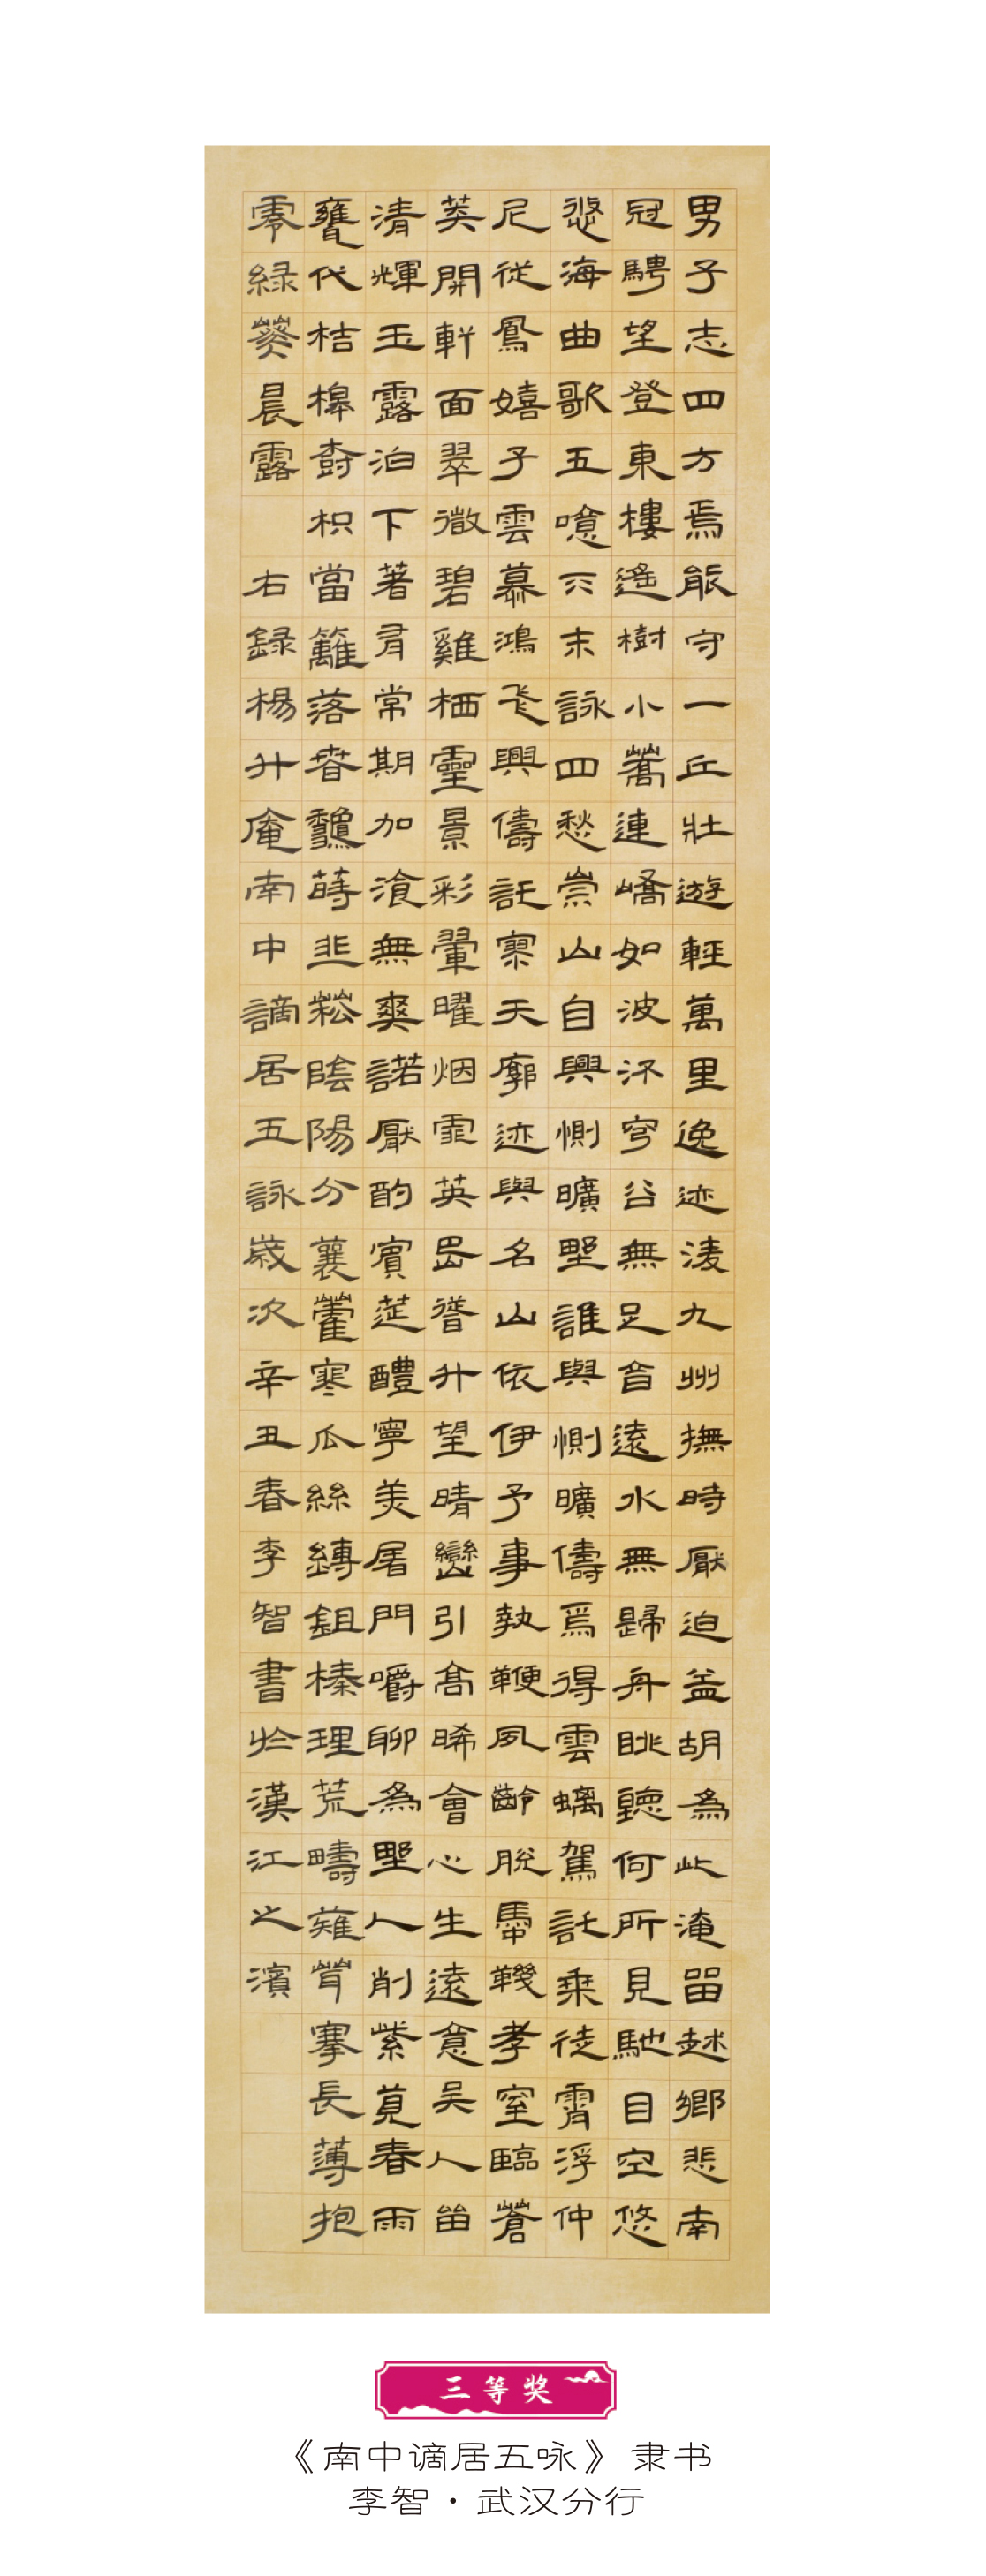 男子志四方焉能守一丘壯遊輕萬里逸迹淩九州撫時厭迫益胡為此淹畱越鄉悲南
冠騁望登東樓遙樹小蒿連嶠如波穹谷無足音遠水無歸舟眺聽何所見馳目空悠
悠海曲歌五噫天末詠四愁崇山自興惻曠野誰與惻曠儔焉得雲螭駕託乘徒霄浮仲
尼從鳳嬉子雲慕鴻飛興儔託寥天廓迹與名山依伊予事執鞭夙齡脫馽鞿孝室臨蒼
英開軒面翠微碧雞栖靈景彩翬曜烟霏英嵒升望晴巒引高晞會心生遠意吳人畱
清輝玉露泊下著有常期加飡無爽諾厭酌賓筵醴寧美屠門嚼聊為野人削紫莧春雨
甕代桔槔樹枳當籬落蒔韭菘陰陽分蘘藿寒瓜絲縛鉏榛理荒疇薙茸搴長薄抱
零綠葵晨露 右錄楊升庵南中謫居五詠歲次辛丑春李智書於漢江之濱
三等奖
《南中谪居五咏》隶书
李智·武汉分行